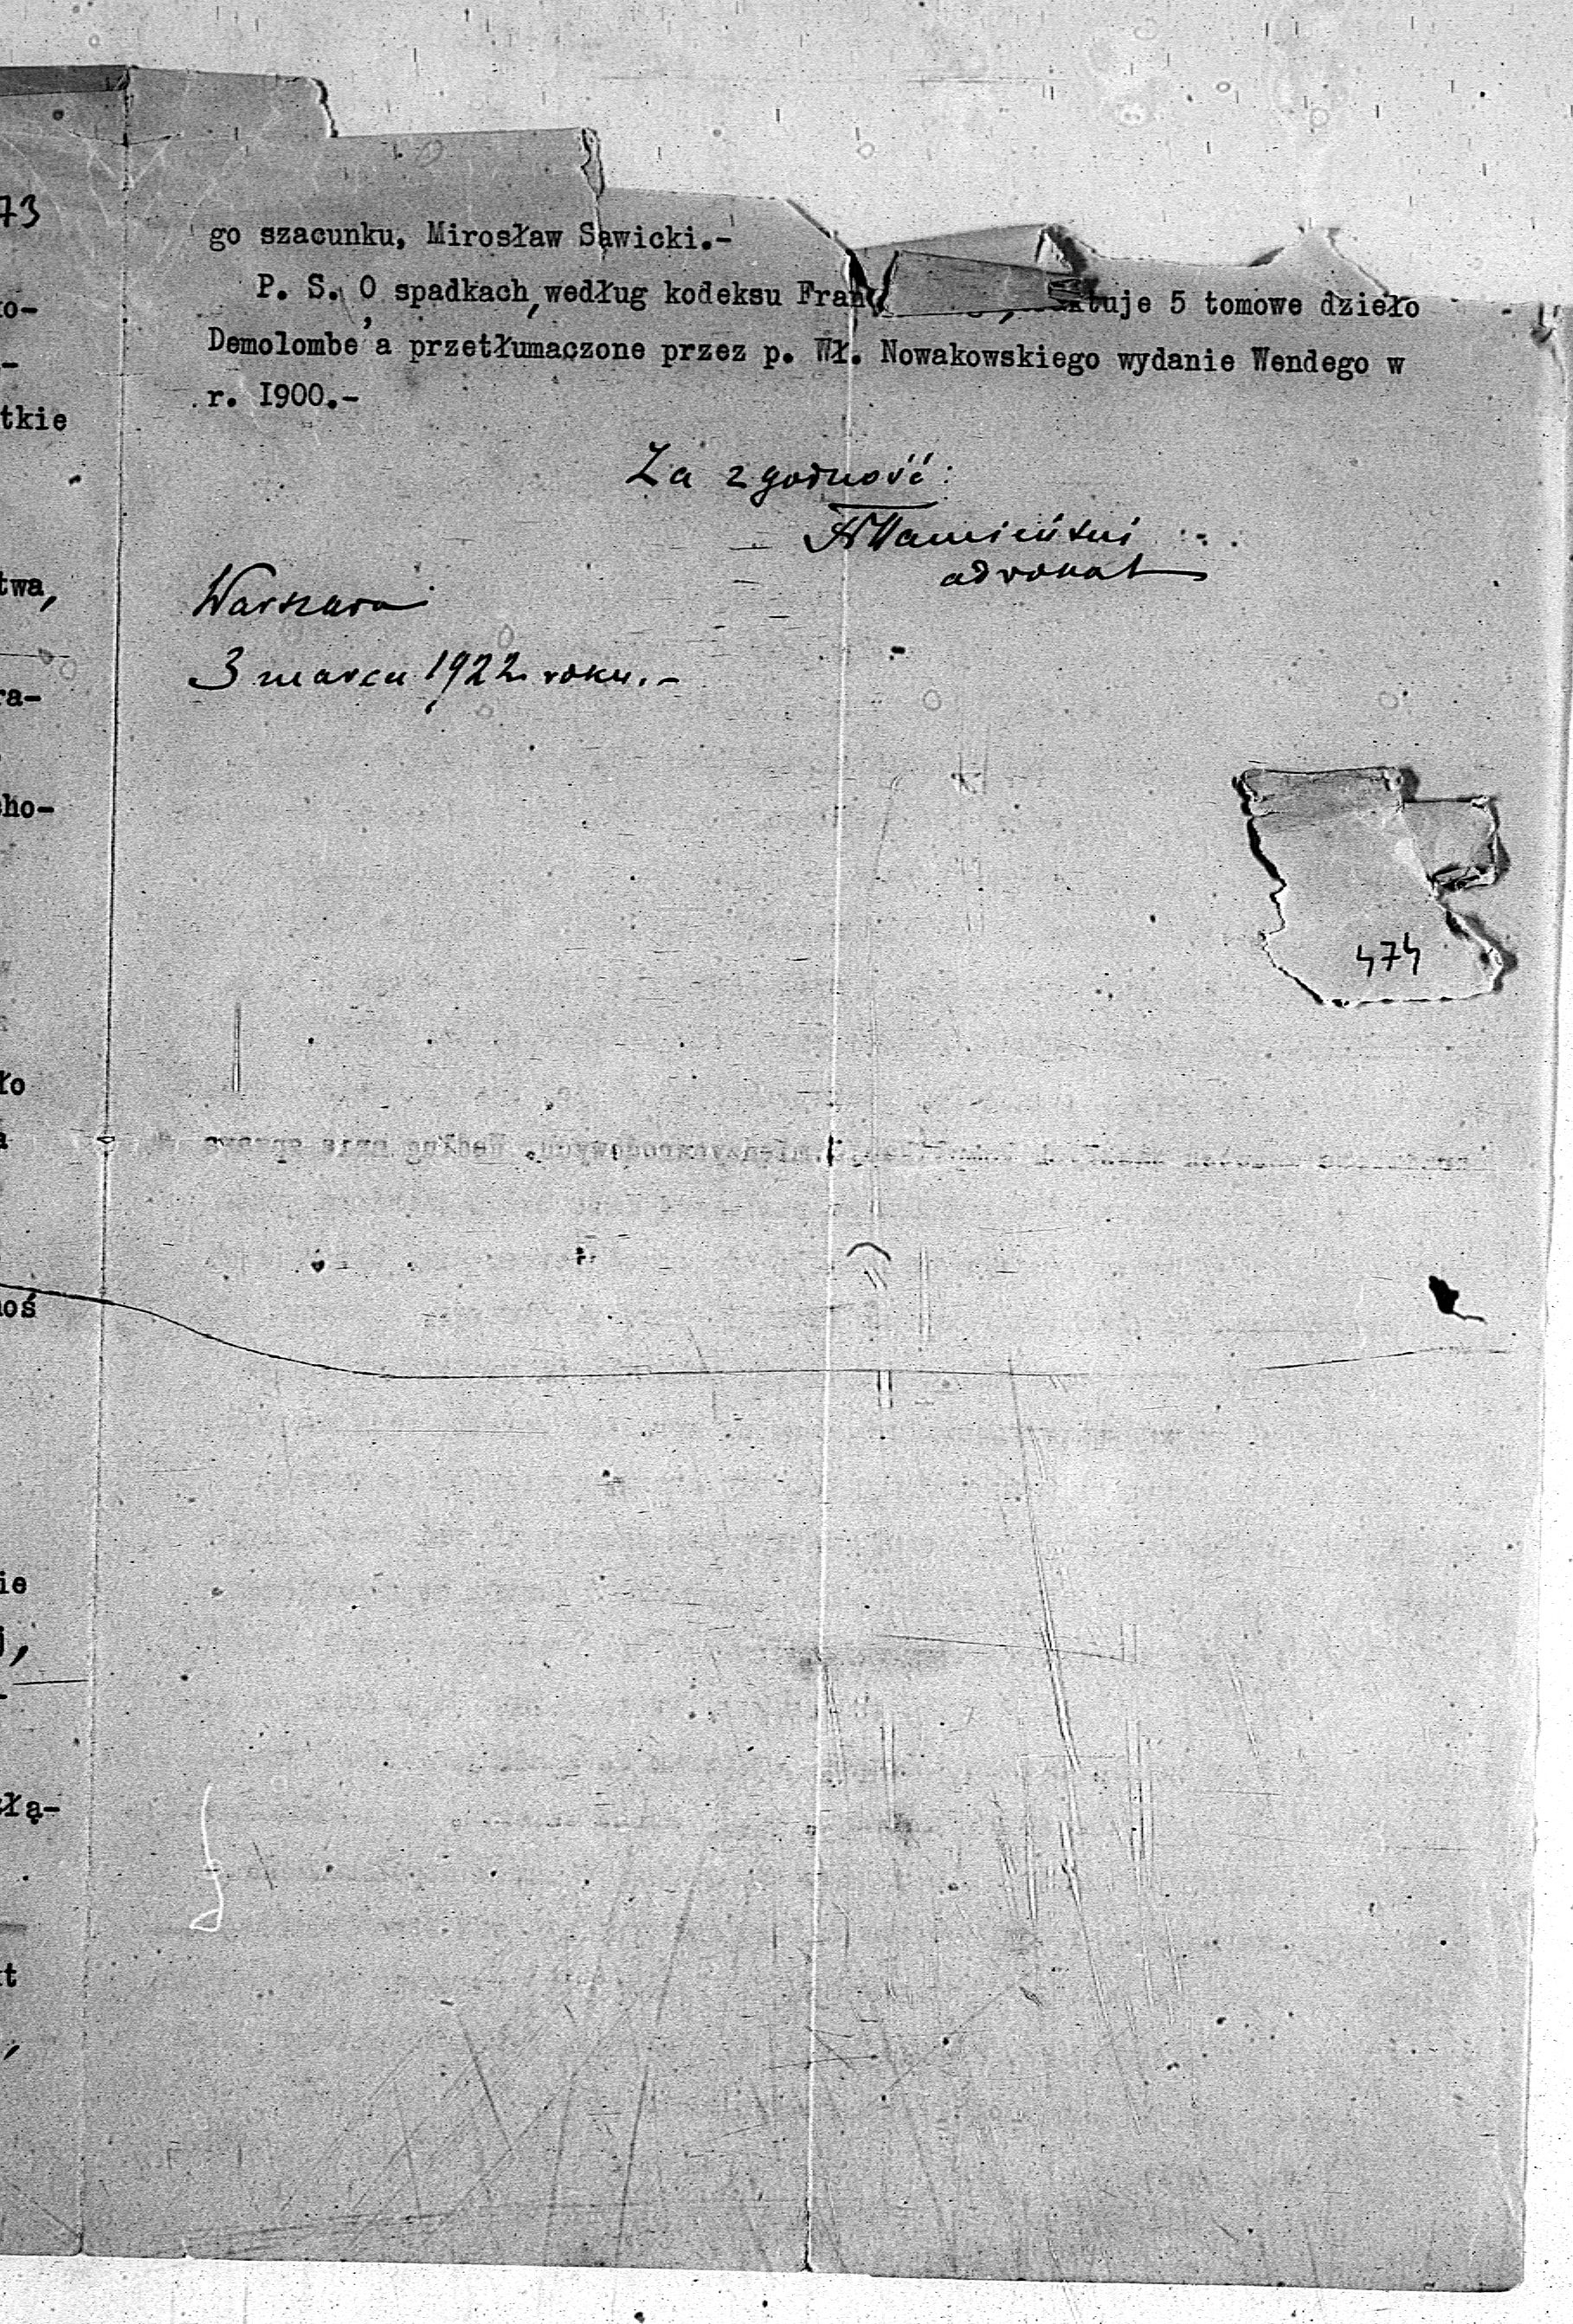 73
go szacunku, Mirosław Sawicki.-
P. S. O spadkach, według kodeksu Fran tuje 5 tomowe dzieło
Demolombe'a przetłumaczone przez p. Wł. Nowakowskiego wydanie Wendego w
r. I900.-
Za zgodność:
adwokat
Warszawa
3 marca 1922 roku.-
474
o-
-
tkie
twa,
ra-
cho-
ło
a
noś
ie
j,
-
łą-
kt
,
międzynarodowych. Według